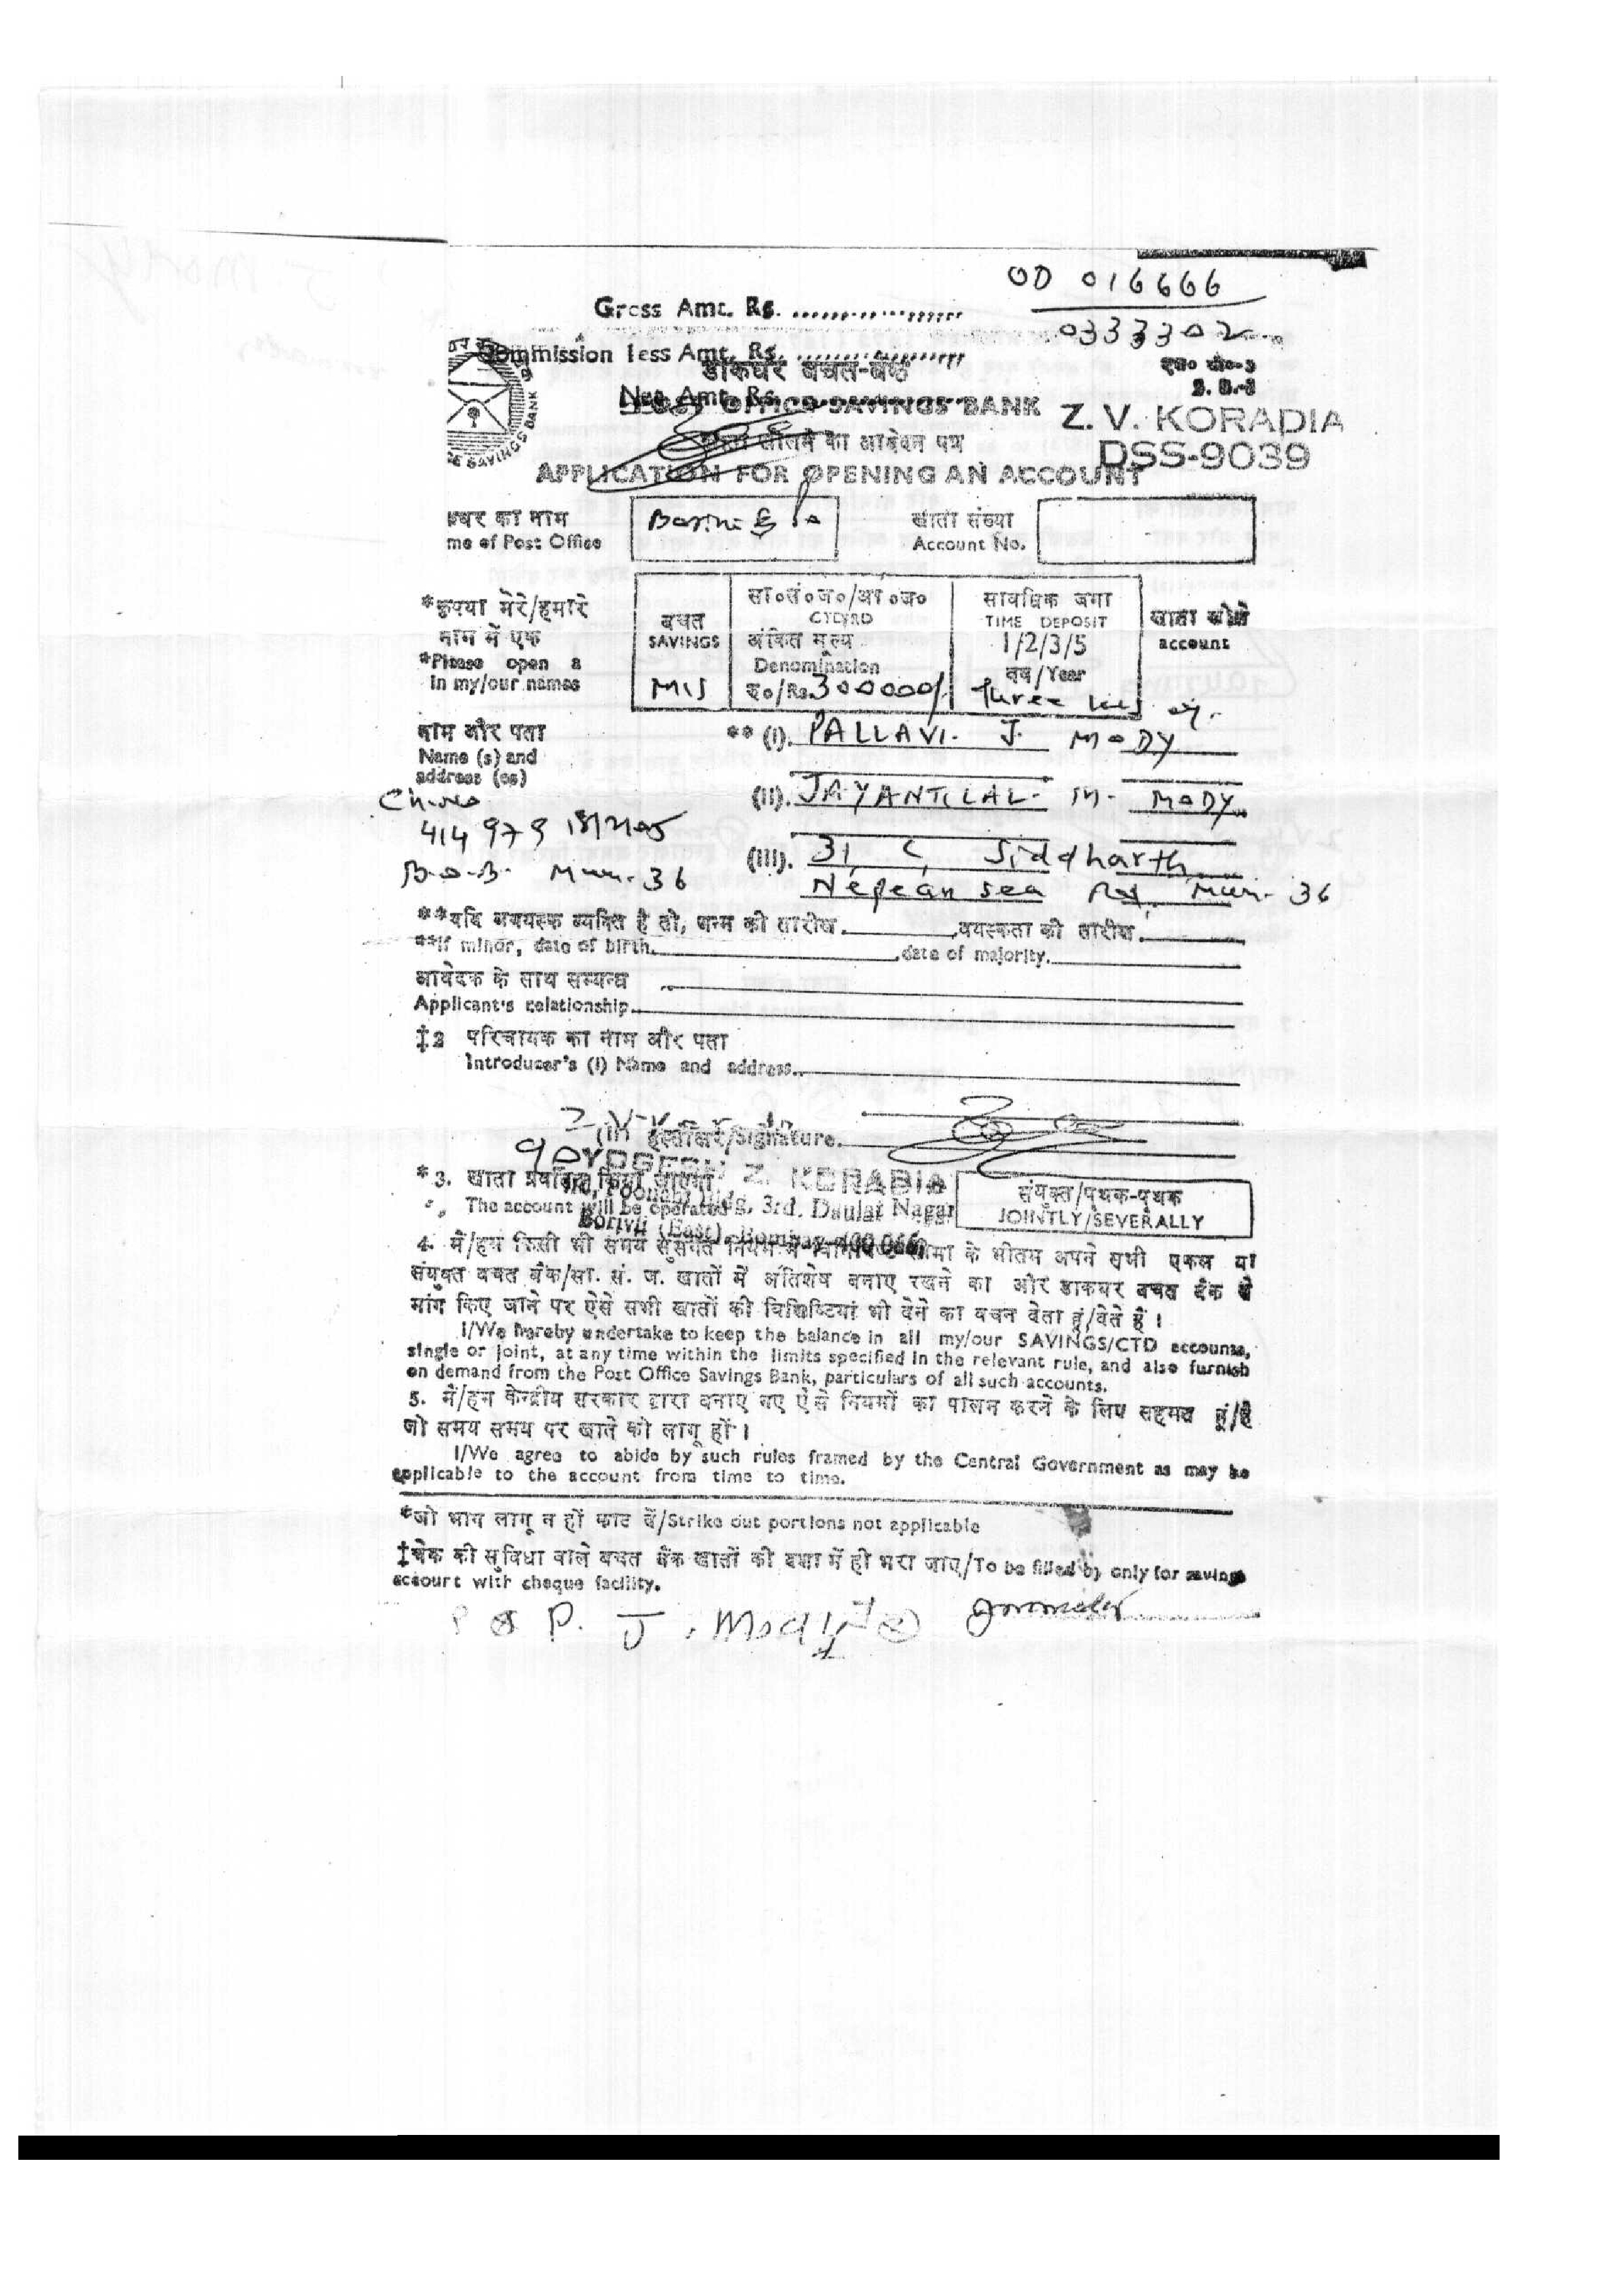 OD 016666
Gross Amt. Rs. ....................
0333302
Commission less Amt. Rs. ....................
डाकघर बचत-बैंक
एस० बी०-3
S. B.-3
Net Amt. Rs.
POST OFFICE SAVINGS BANK
Z. V. KORADIA
खाता खोलने का आवेदन पत्र
DSS-9039
APPLICATION FOR OPENING AN ACCOUNT
E SAVINGS BANK
घर का नाम
खाता संख्या
me of Post Office
Account No.
*कृपया मेरे/हमारे
नाम में एक
*Please open a
in my/our names
बचत
SAVINGS
MIS
सा०सं०ज०/आ०ज०
CTD/RD
अंकित मूल्य
Denomination
रु०/Rs. 300000/
सावधिक जमा
TIME DEPOSIT
1/2/3/5
वर्ष/Year
Three
खाता खोलें
account
नाम और पता
Name (s) and
address (es)
** (I). PALLAVI. J. MODY
(II). JAYANTILAL. M. MODY
Ch. No
414979
B.O.B. Mum. 36
(III). 31, C, Siddharth
Nepean sea Rd, Mum. 36
**यदि अवयस्क व्यक्ति है तो, जन्म की तारीख. वयस्कता की तारीख.
**If minor, date of birth. date of majority.
आवेदक के साथ सम्बन्ध
Applicant's relationship
‡2 परिचायक का नाम और पता
Introducer's (I) Name and address
(II) हस्ताक्षर/Signature.
YOGESH Z. KORADIA
*3. खाता प्रचालित किया जाएगा
The account will be operated
Bldg, 3rd. Daulat Nagar
Borivli (East), Bombay-400 066
संयुक्त/पृथक-पृथक
JOINTLY/SEVERALLY
4. मैं/हम किसी भी समय सुसंगत नियम में सीमा के भीतर अपने सभी एकल या
संयुक्त बचत बैंक/सा. सं. ज. खातों में अतिशेष बनाए रखने का और डाकघर बचत बैंक से
मांग किए जाने पर ऐसे सभी खातों की विशिष्टियां भी देने का वचन देता हूं/देते हैं।
I/We hereby undertake to keep the balance in all my/our SAVINGS/CTD accounts,
single or joint, at any time within the limits specified in the relevant rule, and also furnish
on demand from the Post Office Savings Bank, particulars of all such accounts.
5. मैं/हम केन्द्रीय सरकार द्वारा बनाए गए ऐसे नियमों का पालन करने के लिए सहमत हूं/हैं
जो समय समय पर खाते को लागू हों।
I/We agree to abide by such rules framed by the Central Government as may be
applicable to the account from time to time.
*जो भाग लागू न हों काट दें/Strike out portions not applicable
‡चेक की सुविधा वाले बचत बैंक खातों की दशा में ही भरा जाए/To be filled by only for savings
account with cheque facility.
P. J. Mody